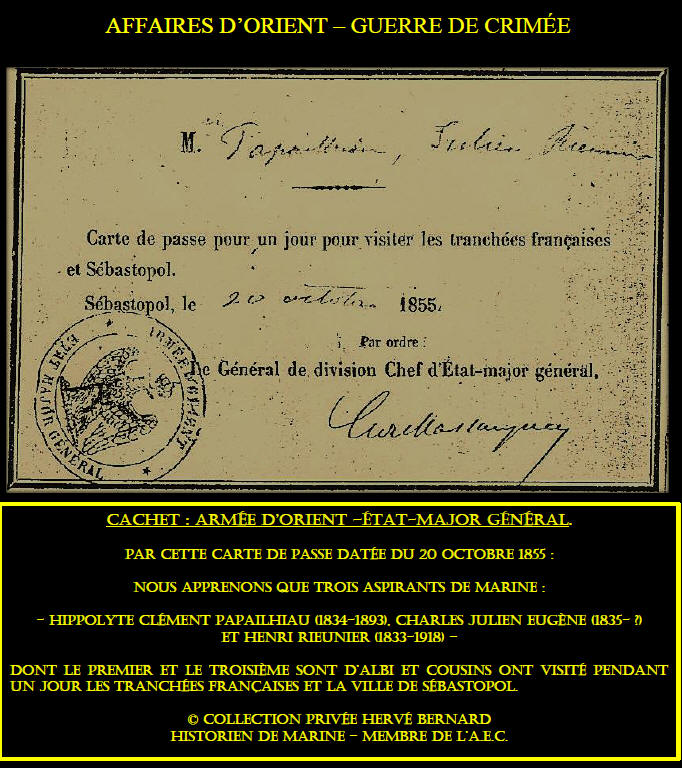 AFFAIRES D'ORIENT – GUERRE DE CRIMÉE
M. Papailhiau, Julien, Rieunier
Carte de passe pour un jour pour visiter les tranchées françaises
et Sébastopol.
Sébastopol, le 20 octobre 1855.
Par ordre :
Le Général de division Chef d'État-major général,
ARMÉE D'ORIENT
ETAT MAJOR GÉNÉRAL
CACHET : ARMÉE D'ORIENT –ÉTAT-MAJOR GÉNÉRAL.
PAR CETTE CARTE DE PASSE DATÉE DU 20 OCTOBRE 1855 :
NOUS APPRENONS QUE TROIS ASPIRANTS DE MARINE :
- HIPPOLYTE CLÉMENT PAPAILHIAU (1834-1893), CHARLES JULIEN EUGÈNE (1835- ?)
ET HENRI RIEUNIER (1833-1918) -
DONT LE PREMIER ET LE TROISIÈME SONT D'ALBI ET COUSINS ONT VISITÉ PENDANT
UN JOUR LES TRANCHÉES FRANÇAISES ET LA VILLE DE SÉBASTOPOL.
© COLLECTION PRIVÉE HERVÉ BERNARD
HISTORIEN DE MARINE - MEMBRE DE L'A.E.C.